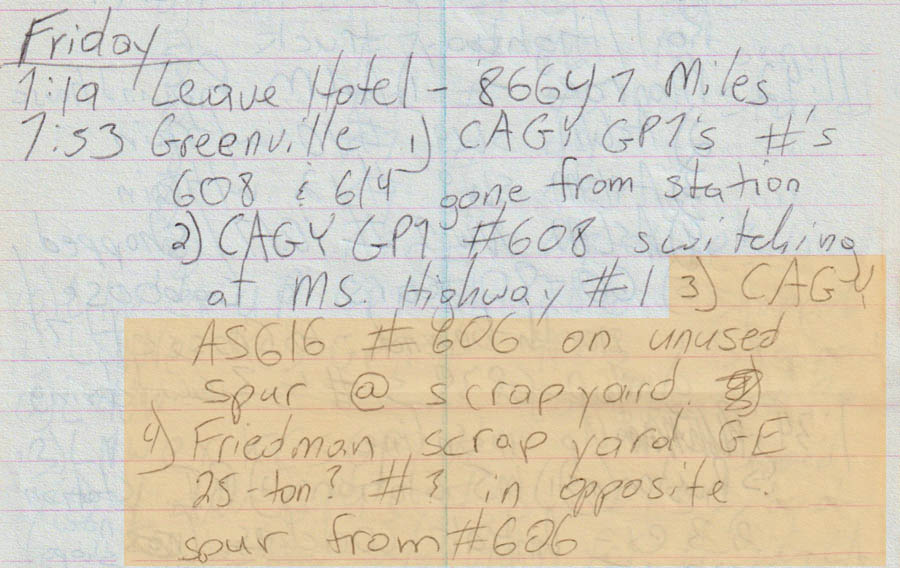 Friday
7:19 Leave Hotel - 86647 Miles
7:53 Greenville 1) CAGY GP7's #'s
608 & 614 gone from station
2) CAGY GP7 #608 switching
at MS. Highway #1 3) CAGY
AS616 #606 on unused
spur @ scrap yard.
4) Friedman scrap yard GE
25-ton? #? in opposite
spur from #606